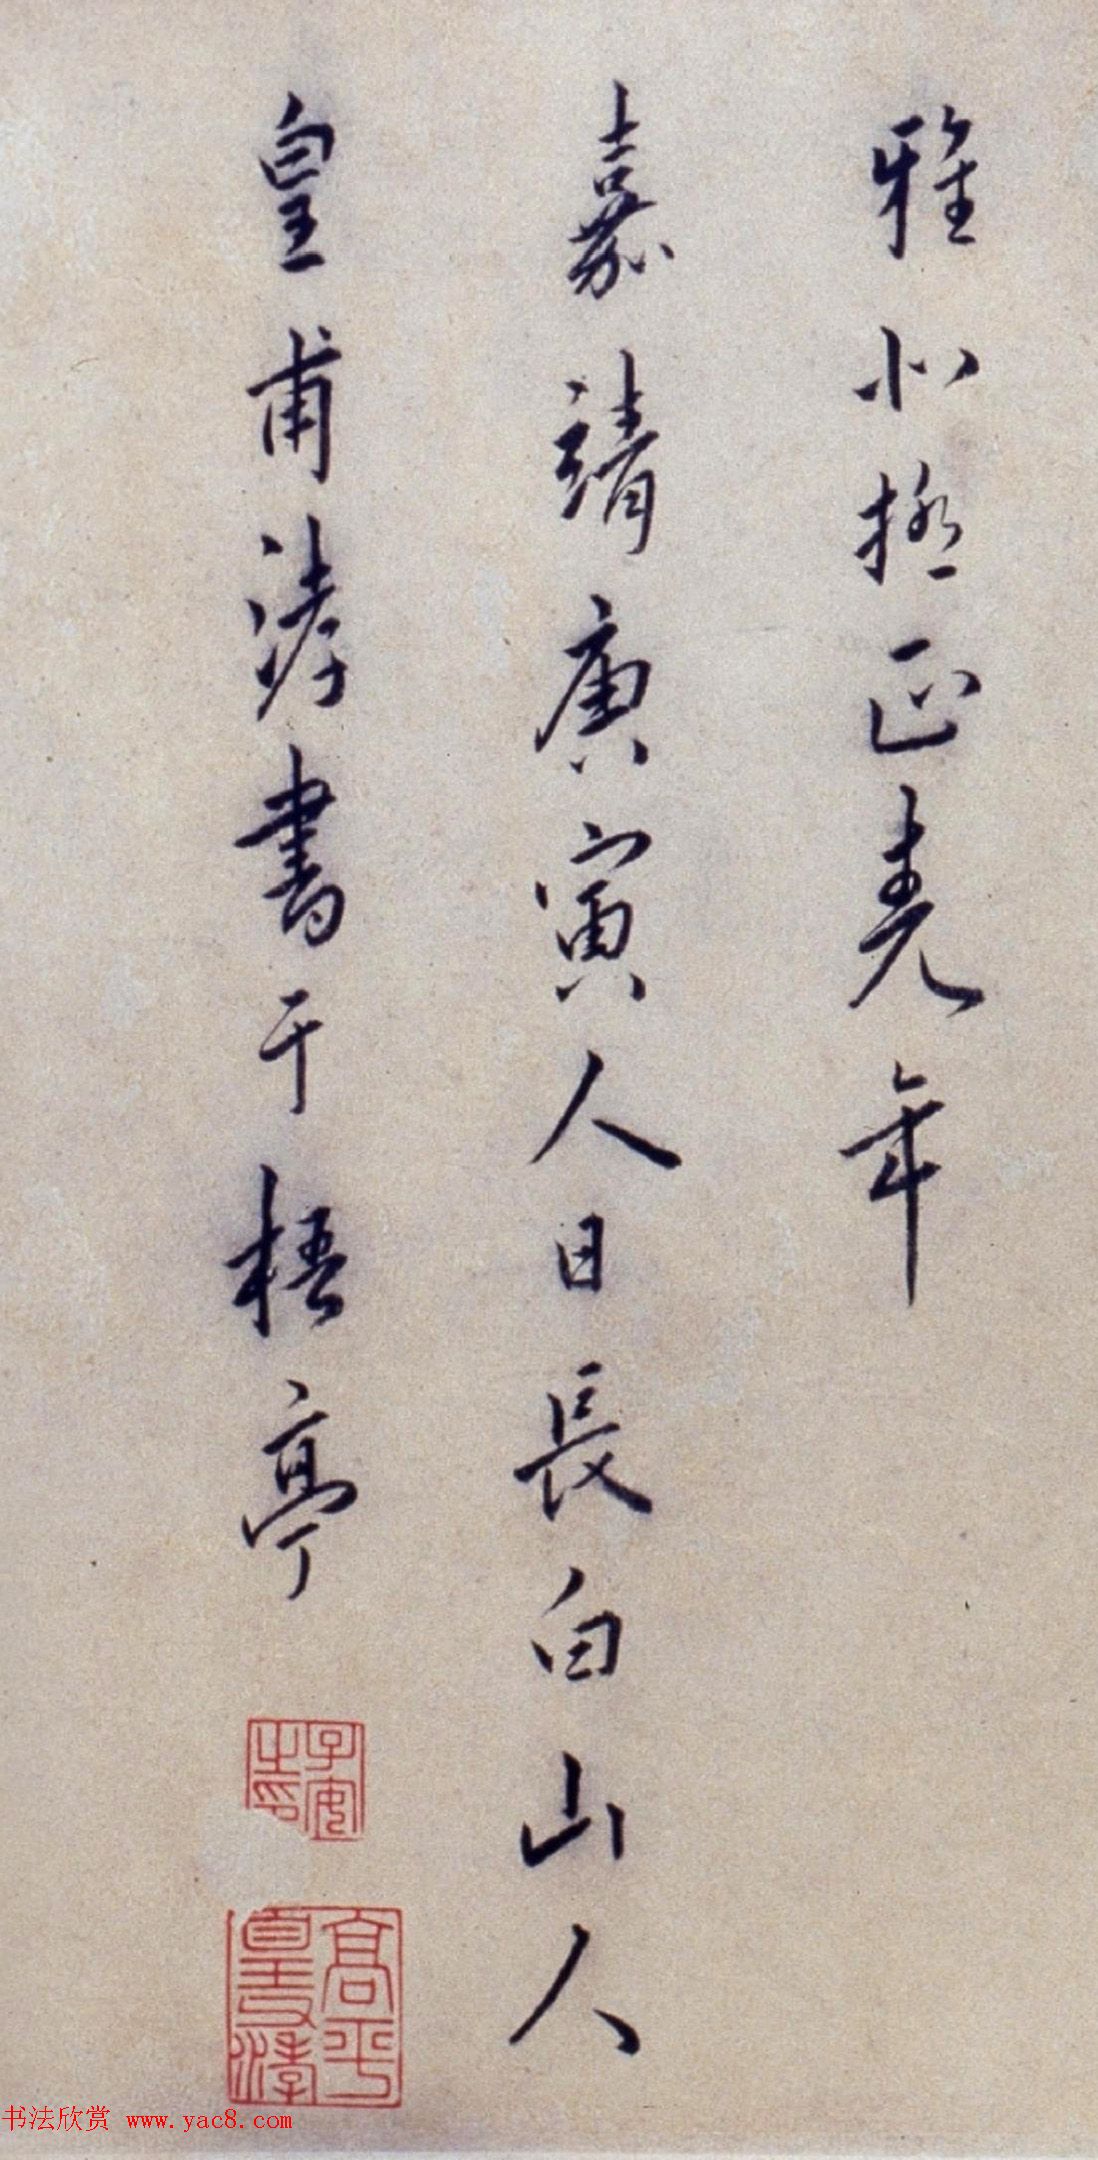 雅水極正堯年
嘉靖庚寅人日長白山人
皇甫涍書于梧亭
子安之印
高平皇甫涍
书法欣赏 www.yac8.com